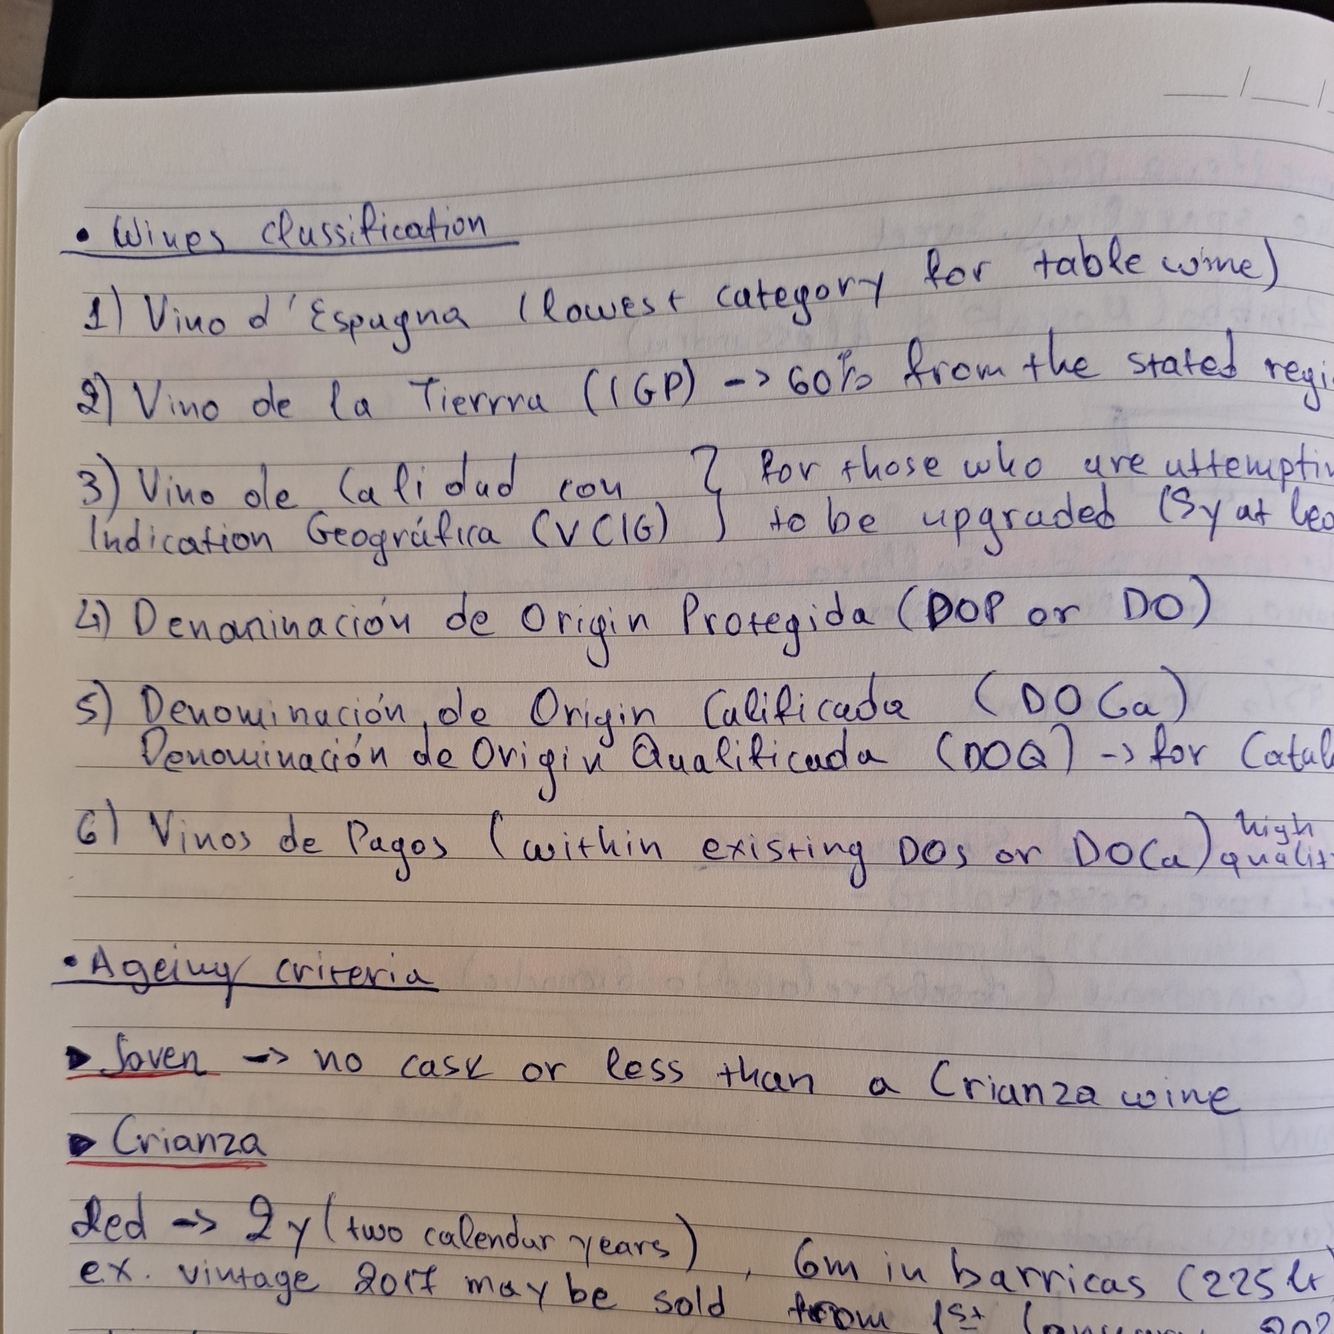 • Wines classification
1) Vino d'Espagna (lowest category for table wine)
2) Vino de la Tierrra (IGP) -> 60% from the stated regi
3) Vino de Calidad con } for those who are attemptin
Indication Geográfica (VCIG) } to be upgraded (5y at lea
4) Denaninación de Origin Protegida (DOP or DO)
5) Denominación de Origin Calificada (DOCa)
Denominación de Origin Qualificada (DOQ) -> for Catal
6) Vinos de Pagos (within existing DOs or DOCa) high qualit
• Ageing criteria
Joven -> no cask or less than a Crianza wine
Crianza
Red -> 2y (two calendar years), 6m in barricas (225 lt
ex. vintage 2017 may be sold from 1st January 202